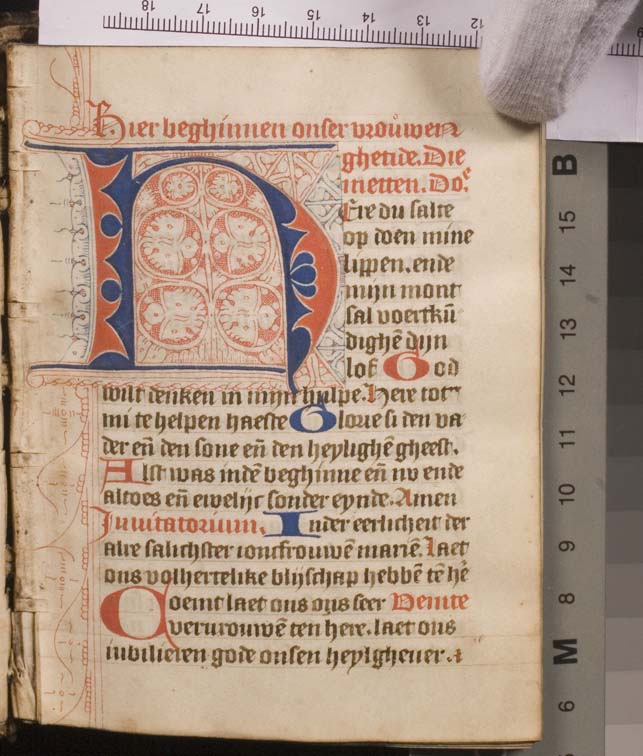 18 17 16 15 14 13 12
Hier beghinnen onser vrouwen
ghetide. Die
metten. Do.ͤ
HEre du salte
op doen mine
lippen. ende
mijn mont
sal voertkū
dighē dijn
lof God
wilt denken in mijn hulpe. Here tot
mi te helpen haeste Glorie si den va
der eñ den sone eñ den heylighē gheest.
Alst was indē beghinne eñ nv ende
altoes eñ ewelijc sonder eynde. Amen
Inuitatorium. Inder eerlicheit der
alre salichster ioncfrouwē mariē. Laet
ons volhertelike blijschap hebbē tē hē
Coemt laet ons ons seer Venite
vervrouwē ten here. laet ons
iubilieren gode onsen heylgheuer.
B
15
14
13
12
11
10
9
8
M
6